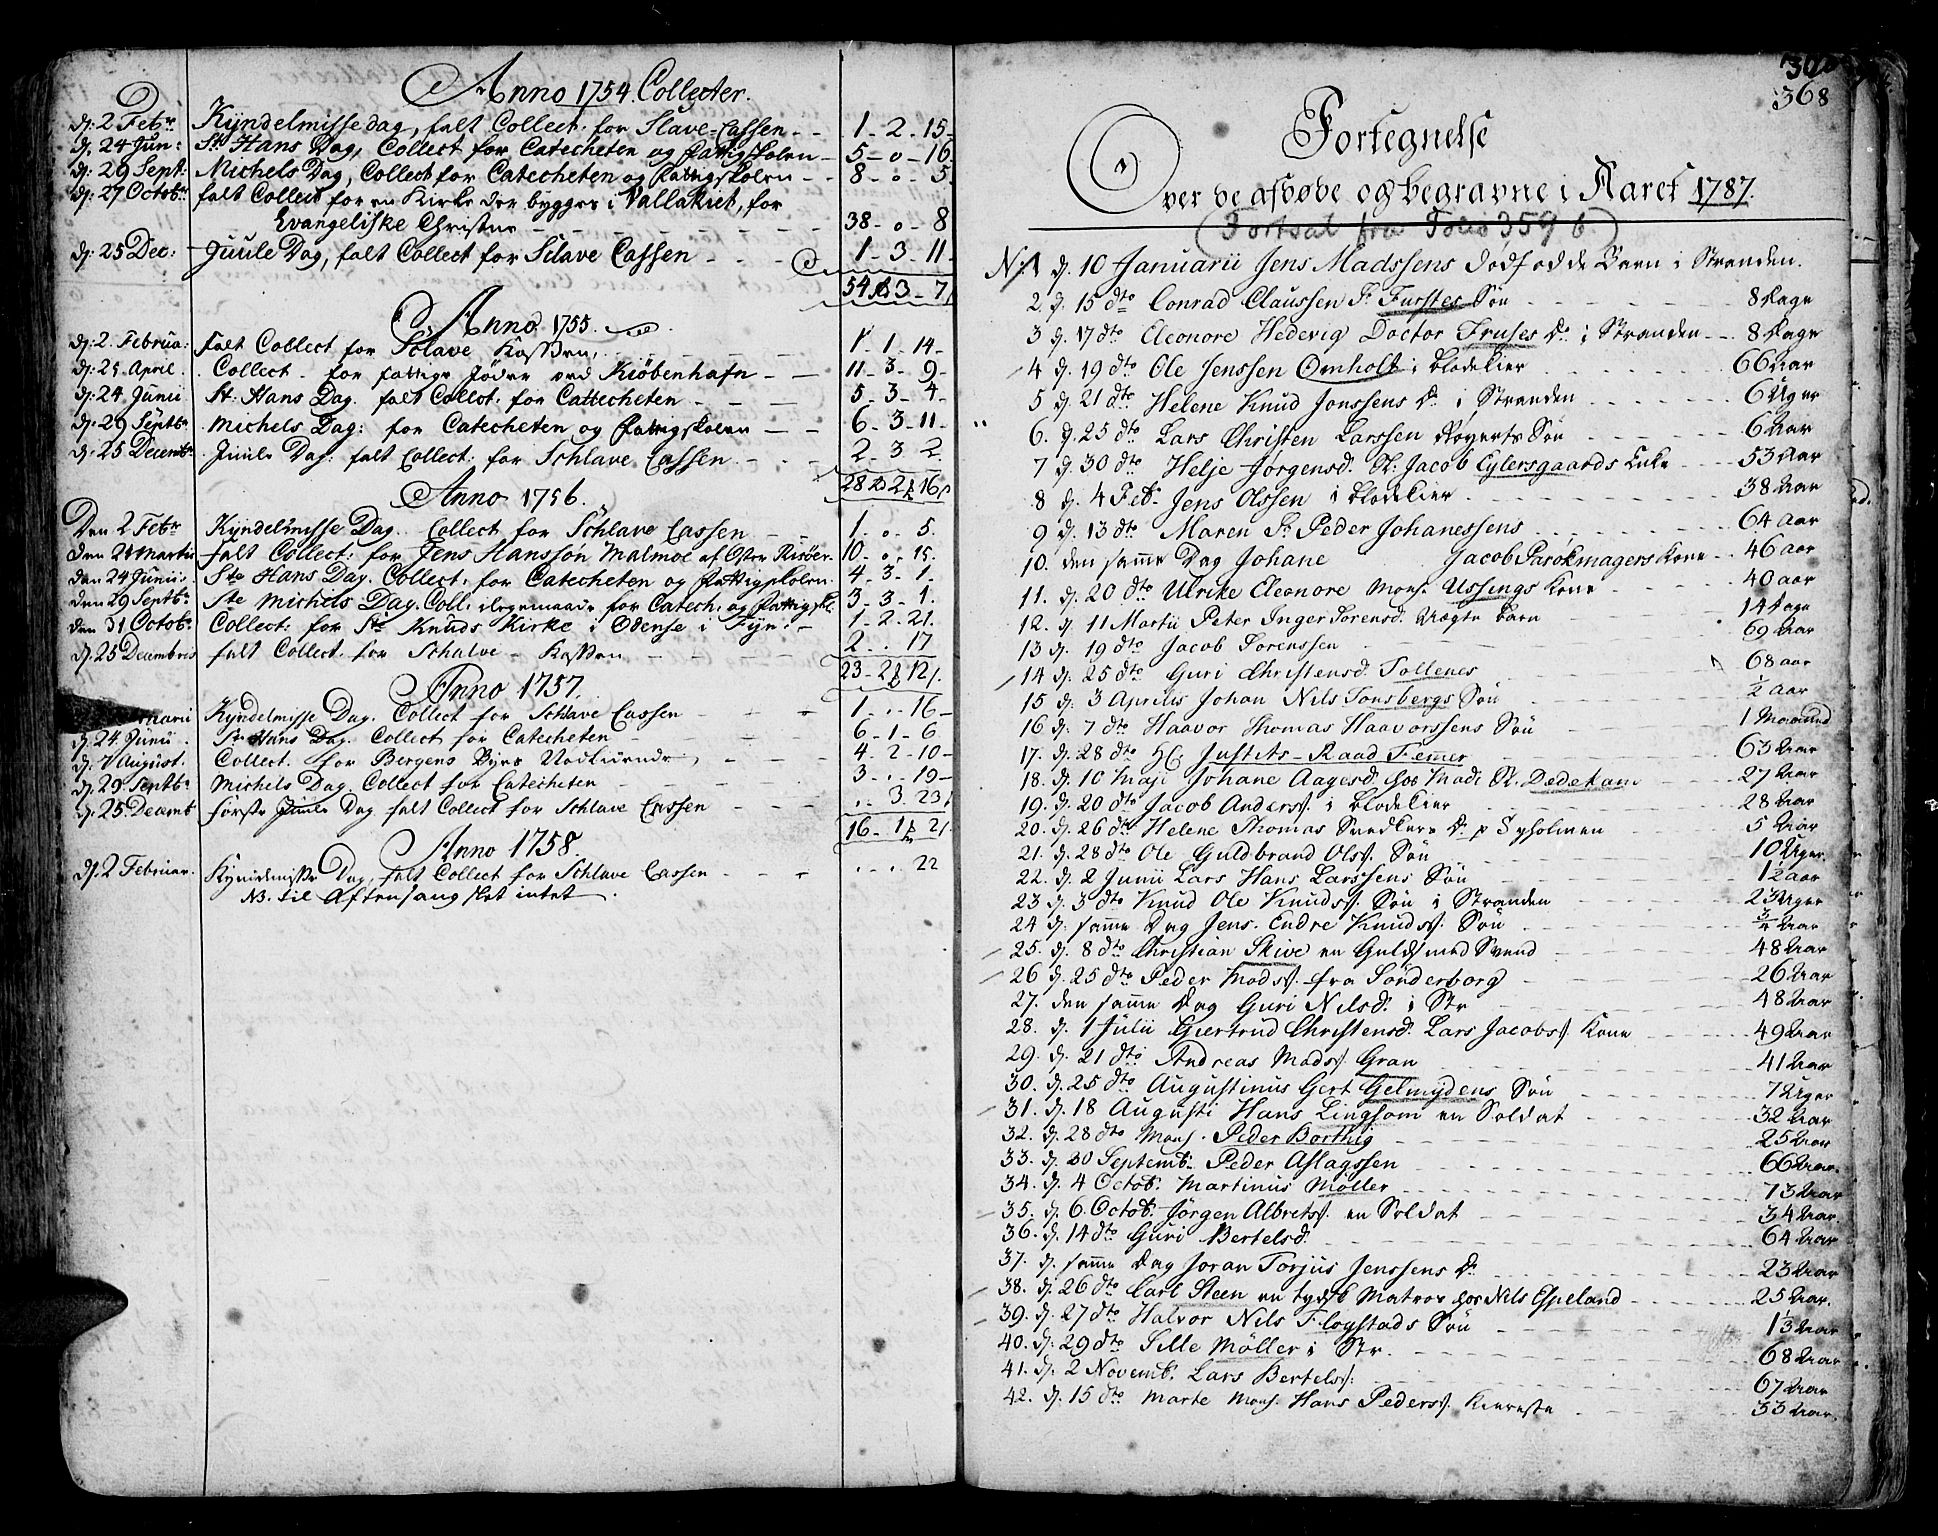 Anno 1754. Collecter.
d: 2 Febr: Kyndelmisse dag, falt Collect. for Slave-Cassen - - 1 - 2 - 15 -
d: 24 Jun: St Hans Dag, Collect for Catecheten og fattigskolen - 5 - 0 - 16.
d: 29 Sept: Michels Dag, Collect for Catecheten og fattigskolen - - 8 - 0 - 5.
d: 27 Octobr: falt Collect for en Kirke der bygges i Vallakiet, for
Evangeliske Christne - - - - 38 - 0 - 8
d: 25 Dec: Juule Dag, falt Collect for Sclave Cassen - - - 1 - 3 - 11 -
54 3 - 7
Anno 1755.
d: 2 Februa: falt Collect for Sclave Kassen, - - - 1 - 1 - 14 -
d: 25 April. Collect. for fattige Jøder ved Kiöbenhafn - - 11 - 3 - 9 -
d: 24 Junii St: Hans Dag. falt Collect. for Catecheten - - - 5 - 3 - 4 -
d: 29 Septbr. Michels Dag: for Catecheten og fattigskolen - - 6 - 3 - 11 -
d. 25 Decemb. Juule Dag: falt Collect. for Schlave Cassen - - - 2 - 3 2.
28 2 16
Anno 1756.
Den 2 Febr. Kyndelmisse Dag. Collect for Schlave Cassen - - 1. 0. 5.
den 21 Martii falt Collect: for Jens Hansson Malmoe af Oster Risöer - 10 - 0 - 15.
den 24 Junii. Ste Hans Dag. Collect: for Catecheten og fattigskolen - 4 - 3 - 1.
den 29 Septbr. Ste Michels Dag. Coll: ligemaade for Catech: og Fattigskl. 3 - 3 - 1.
den 31 Octobr. Collect: for St: Knuds Kirke i Odense i Fyn: - 1 - 2. 21.
d. 25 Decembris falt Collect. for Schalve - Kassen - - - 2 . . 17
23 - 2 12
Anno 1757.
Kyndelmisse Dag. Collect for Schlave Cassen - - - 1 - . . 16 -
d. 24 Junii St Hans Dag. Collect for Catecheten - - - 6 - 1 - 6
d. 7 August. Collect. for Bergens Byes - 4 - 2 - 10 -
d. 29 Septbr. Michels Dag. Collect for Catecheten - - - 3 - . . 19 -
d. 25 Decemb første Juule Dag falt Collect for Schlave Cassen - - - . . 3. 23
16 - 1 21.
Anno 1758.
d. 2 Februar. Kyndelmisse Dag. falt Collect for Schlave Cassen - - - . . . 22
NB. til Aftensang sket intet.
368
Fortegnelse
Over de afdøde og begravne i Aaret 1787.
(Fortsat fra Folio 359 b)
No: 1 d. 10 Januarii Jens Madssens dødfødde Barn i Stranden.
2. d. 15 dto Conrad Claussen Sr. Furstes Søn - - - 8 Dage
3 d. 17 dto Eleonore Hedevig Doctor Fruses Dr. i Stranden - - 8 Dage
4 d. 19 dto Ole Jenssen Omholt i Blodekier - - - 66 Aar
5 d. 21 dto Helene Knud Jonssens Dr. i Stranden - - - 6 Uger
6. d. 25 dto Lars Christen Larssen Søn - - - 6 Aar
7 d. 30 dto Helje Jørgensd. Sl: Jacob Eylersgaards Enke - - - 53 Aar
8 d. 4 Feb. Jens Olssen i Blodekier - - - 38 Aar
9 d. 13 dto Maren Sr. Peder Johanessens - - - 64 Aar
10. den samme Dag Johane Jacob Parokmagers Kone - - 46 aar
11. d. 20 dto Ulrike Eleonore Mons. Ussings Kone - - 40 aar
12. d. 11 Martii Peter Inger Sorensd. Uægte Barn - - 14 dage
13 d. 19 dto Jacob Sorenssen - - - 69 Aar
14 d. 25 dto Guri Christensd. Tollenes - - - 68 aar
15 d. 3 Aprilis Johan Nils Tonsbergs Søn - - - 1/2 aar
16 d. 7 dto Haavor Thomas Haavorssens Søn - - - 1 Maaned
17. d. 28 dto Hr. Justits-Raad Femer - - - 63 Aar
18. d. 10 Maji Johane Aagesd. hos Mad: Sl. Dedekam - - 27 Aar
19. d. 20 dto Jacob Anders. i Blodekier - - - 28 Aar
20. d. 26 dto Helene Thomas Snedkers Dr. p Tyholmen - - - 5 Aar
21. d. 28 dto Ole Guldbrand Ols. Søn - - - 10 Uger
22. d. 2 Junii Lars Hans Larssens Søn - - - 1/2 aar
23 d. 3 dto Knud Ole Knuds. Søn i Stranden - - - 23 Uger
24 d. samme Dag Jens. Endre Knuds. Søn - - - 3/4 Aar
25. d. 8 dto Christian Skive en Guldsmed Svend - - - 48 Aar
26 d. 25 dto Peder Mads. fra Sönderborg - - - 26 Aar
27. den samme Dag Guri Nilsd. i Str - - - 48 Aar
28. d. 1 Julii Giertrud Christensd. Lars Jacobs. Kone - - - 49 Aar
29. d. 21 dto Andreas Mads. Gran - - - 41 Aar
30. d. 25 dto Augustinus Gert Gelmydens Søn - - - 7 Uger
31. d. 18 Augusti Hans Lingsom en Soldat - - - 32 Aar
32. d. 28 dto Mons. Peder Borthig - - - 25 Aar
33. d. 30 Septemb. Peder Aslagssen - - - 66 Aar.
34. d. 4 Octob. Martinus Møller - - - 73 Aar
35. d. 6. Octob. Jørgen Albrets. en Soldat - - - 34 Aar
36. d. 14 dto Guri Bertelsd. - - - 64 Aar
37. d. samme Dag Joran Torjus Jenssens Dr. - - - 23 Aar
38. d. 26 dto Carl Steen en tydsk Matros hos Nils Espeland - - - 25 Aar.
39. d. 27 dto Halvor Nils Flogstads Søn - - - 1 1/3 Aar
40. d: 29 dto Sille Møller i Str. - - - 68 Aar
41. d. 2 Novemb. Lars Bertels: - - - 67 Aar
42. d. 15 dto Marte Mons. Hans Peders. Kiereste - - - 33 Aar.